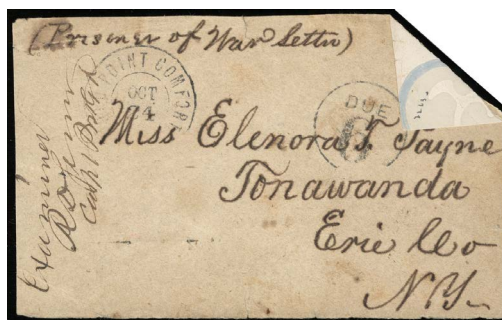 (Prisoner of War Letter)
POINT COMFOR
OCT
4
DUE
6
Miss Elenora T. Jayne
Tonawanda
Erie Co
N.Y.
Examined